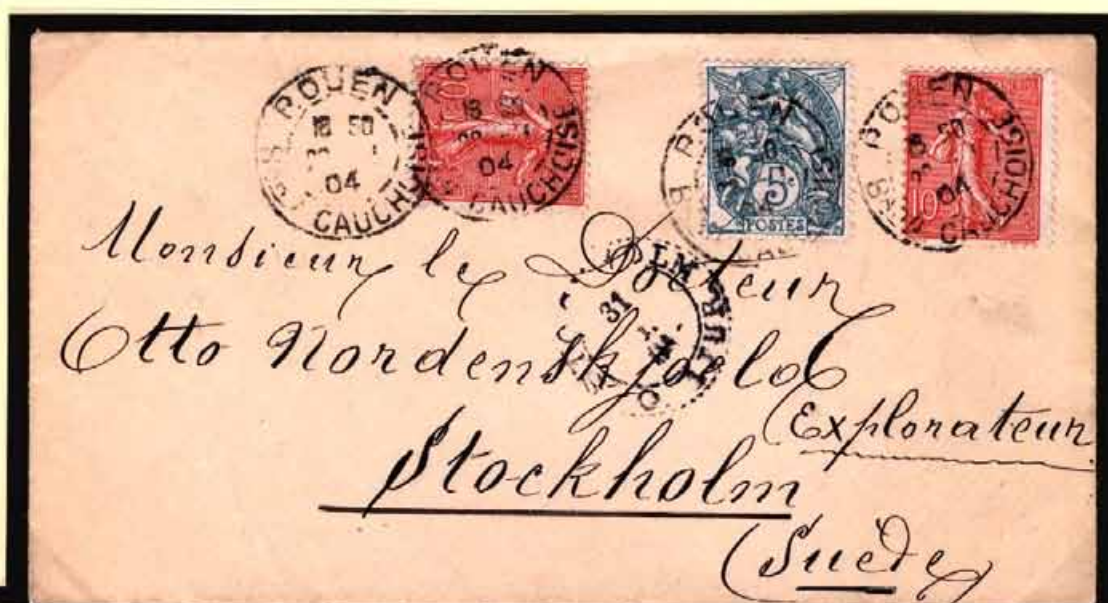 ROUEN
18 50
04
CAUCHOISE
ROUEN
18 50
04
CAUCHOISE
ROUEN
5c
POSTES
ROUEN
50
04
CAUCHOISE
10
Monsieur le Docteur
Otto Nordenskjoeld
31
(Explorateur
Stockholm
(Suède)